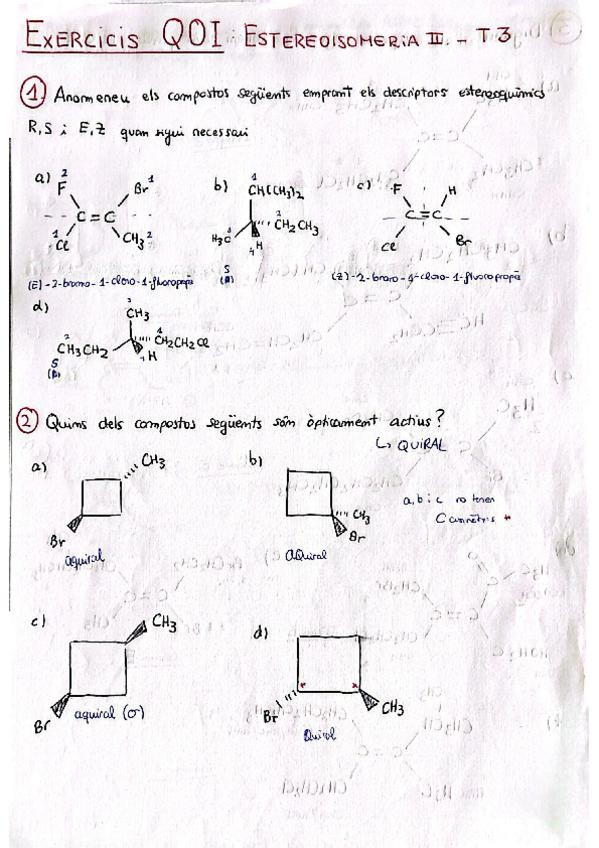 EXERCICIS QOI: ESTEREOISOMERIA II. - T3
1 Anomeneu els compostos següents emprant els descriptors estereoquímics
R,S i E,Z quan sigui necessari
a) 2 F Br 1 C=C 1 Cl CH3 2
b) 1 CH(CH3)2 2 CH2CH3 H3C 3 H 4
c) F H C=C Cl Br
(E)-2-bromo-1-cloro-1-fluoropropà
S
(R)
(Z)-2-bromo-1-cloro-1-fluoropropà
d) 3 CH3 2 CH3CH2 1 CH2CH2Cl 4 H
S
(R)
2 Quins dels compostos següents són òpticament actius?
↳ QUIRAL
a) CH3 Br
aquiral
b) CH3 Br
aquiral
a, b i c no tenen
C asimètris *
c) CH3 Br
aquiral (σ)
d) * * Br CH3
Quiral